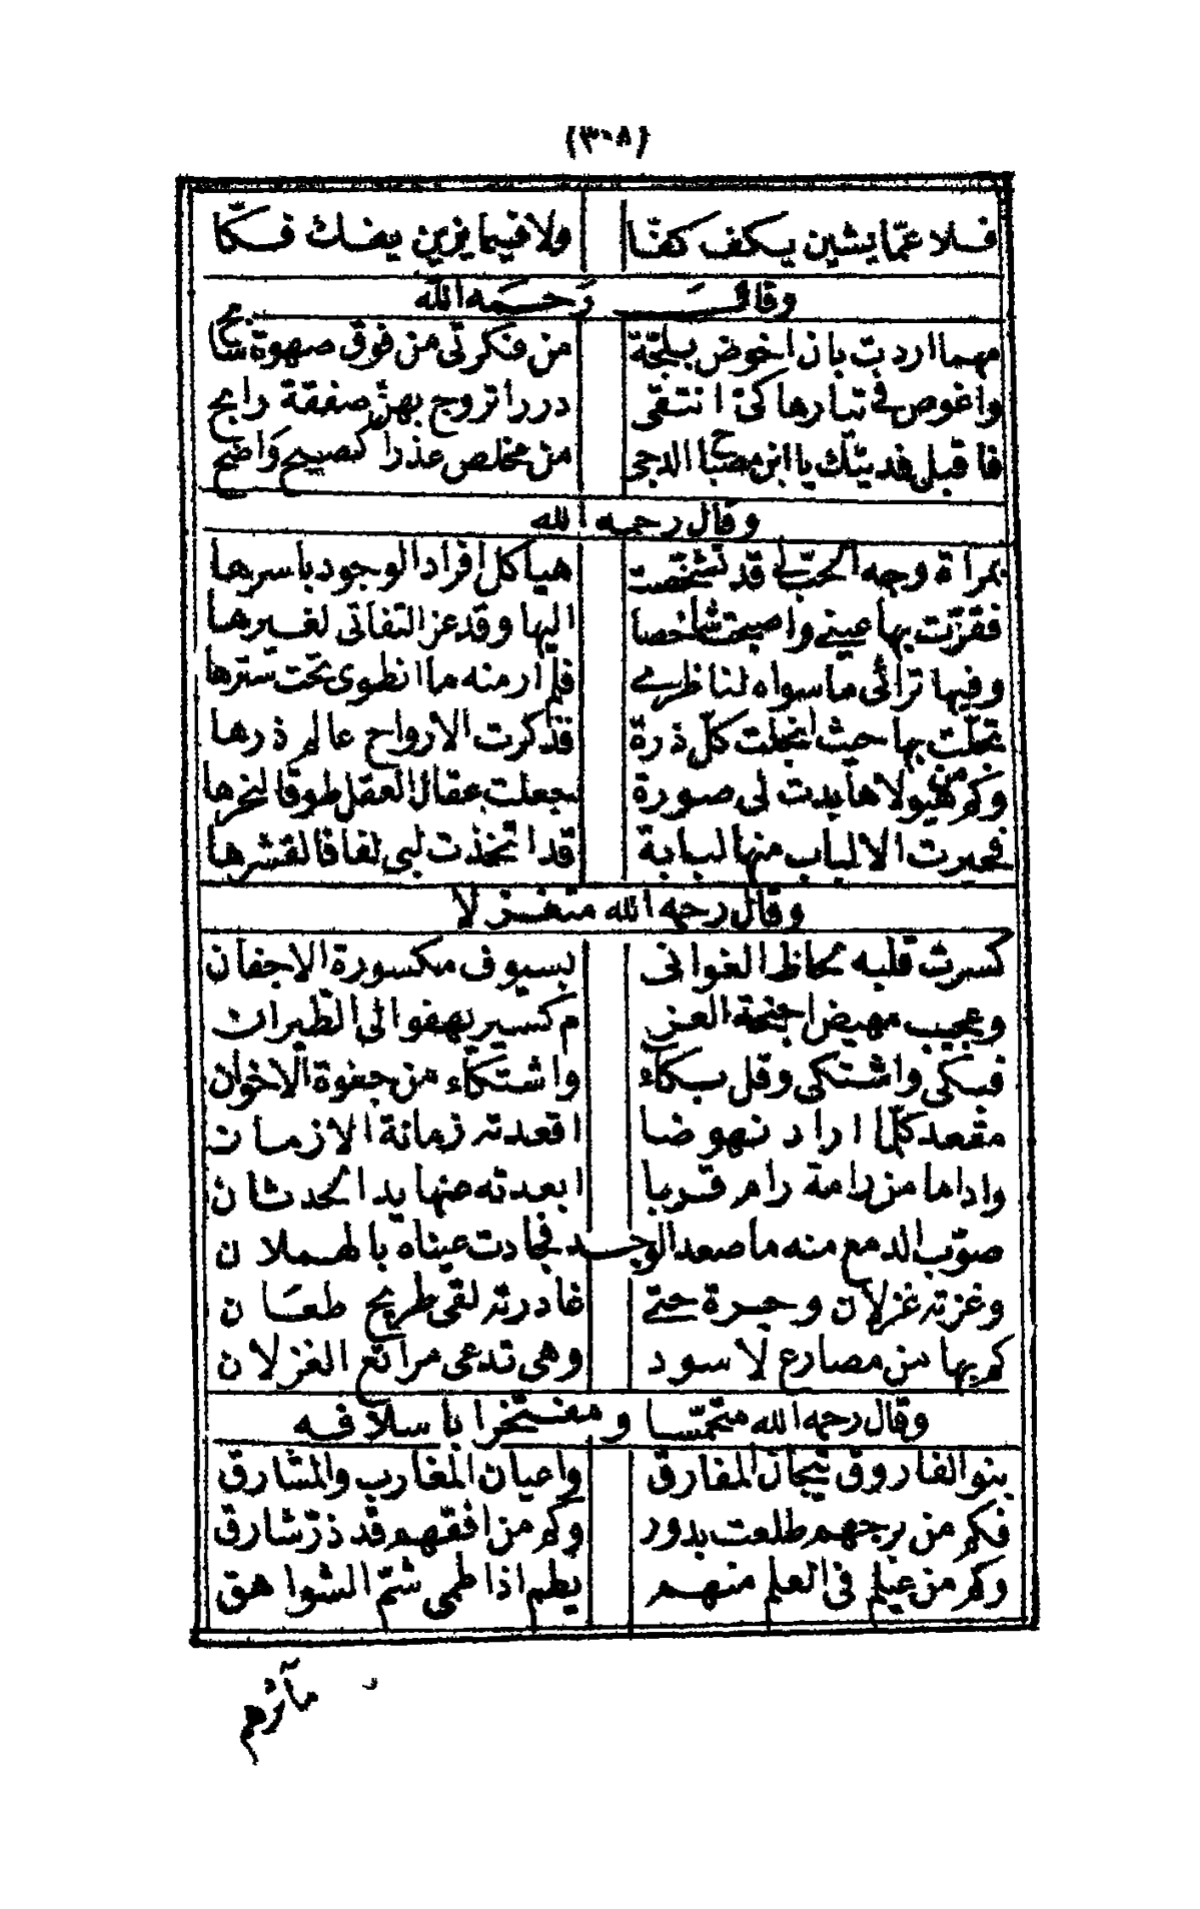 (٣٠٨)
فلا عمّا يشين يكف كفّا ولا فيما يزين يفك فكّا
وقال رحمه الله
مهما اردت بان اخوض بلجّة من فكرتى من فوق صهوة سابح
واغوص فى تيارها كى انتقى دررا تروج بهنّ صفقة رابح
فاقبل فديتك يا ابن مصباح الدجى من مخلص عذرا كصبح واضح
وقال رحمه الله
بمراة وجه الحبّ لى قد تشخّصت هياكل افراد الوجود باسرها
فقرّت بها عينى واصبحت شاخصا اليها وقد عز التفاتى لغيرها
وفيها ترائى ما سواه لناظرى فلم ار منه ما انطوى تحت سترها
تجلّت بها حيث انجلت كلّ ذرة فذكرت الارواح عالم ذرها
وكم من هيولاها بدت لى صورة جعلت عقال العقل طوقا لنحرها
فحيرت الالباب منها لبابة قد اتخذت لبى لفافا لقشرها
وقال رحمه الله متغزلا
كسرت قلبه لحاظ الغوانى بسيوف مكسورة الاجفان
وعجيب مهيض اجنحة العز م كسير يهفو الى الطيران
فبكى واشتكى وقل بكاء واشتكاء من جفوة الاخوان
مقعد كلما اراد نهوضا اقعدته زمانة الازمان
واداما من رامة رام قربا ابعدته منها يد الحدثان
صوّب الدمع منه ما صعد الوجد فجادت عيناه بالهملان
وغزته غزلان وجرة حتى غادرته لقى طريح طعان
كم بها من مصارع لاسود وهى تدعى مراتع الغزلان
وقال رحمه الله متحمّسا ومفتخرا باسلافه
بنو الفاروق تيجان المفارق واعيان المغارب والمشارق
فكم من برجهم طلعت بدور وكم من افقهم قد ذرّ شارق
وكم من عيلم فى العلم منهم يطم اذا طمى شمّ الشواهق
مآثرهم